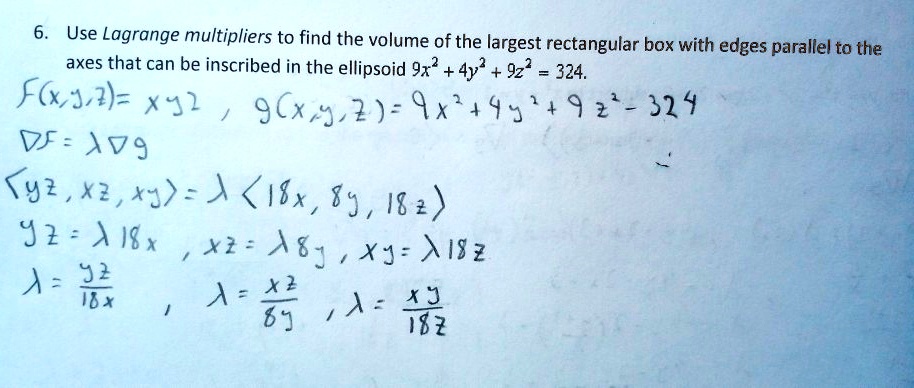 6. Use Lagrange multipliers to find the volume of the largest rectangular box with edges parallel to the
axes that can be inscribed in the ellipsoid 9x² + 4y² + 9z² = 324.
F(x,y,z)= xyz , g(x,y,z)= 9x²+4y²+9z²-324
∇F = λ∇g
⟨yz, xz, xy⟩ = λ ⟨18x, 8y, 18z⟩
yz = λ18x , xz = λ8y , xy = λ18z
λ = yz/18x , λ = xz/8y , λ = xy/18z